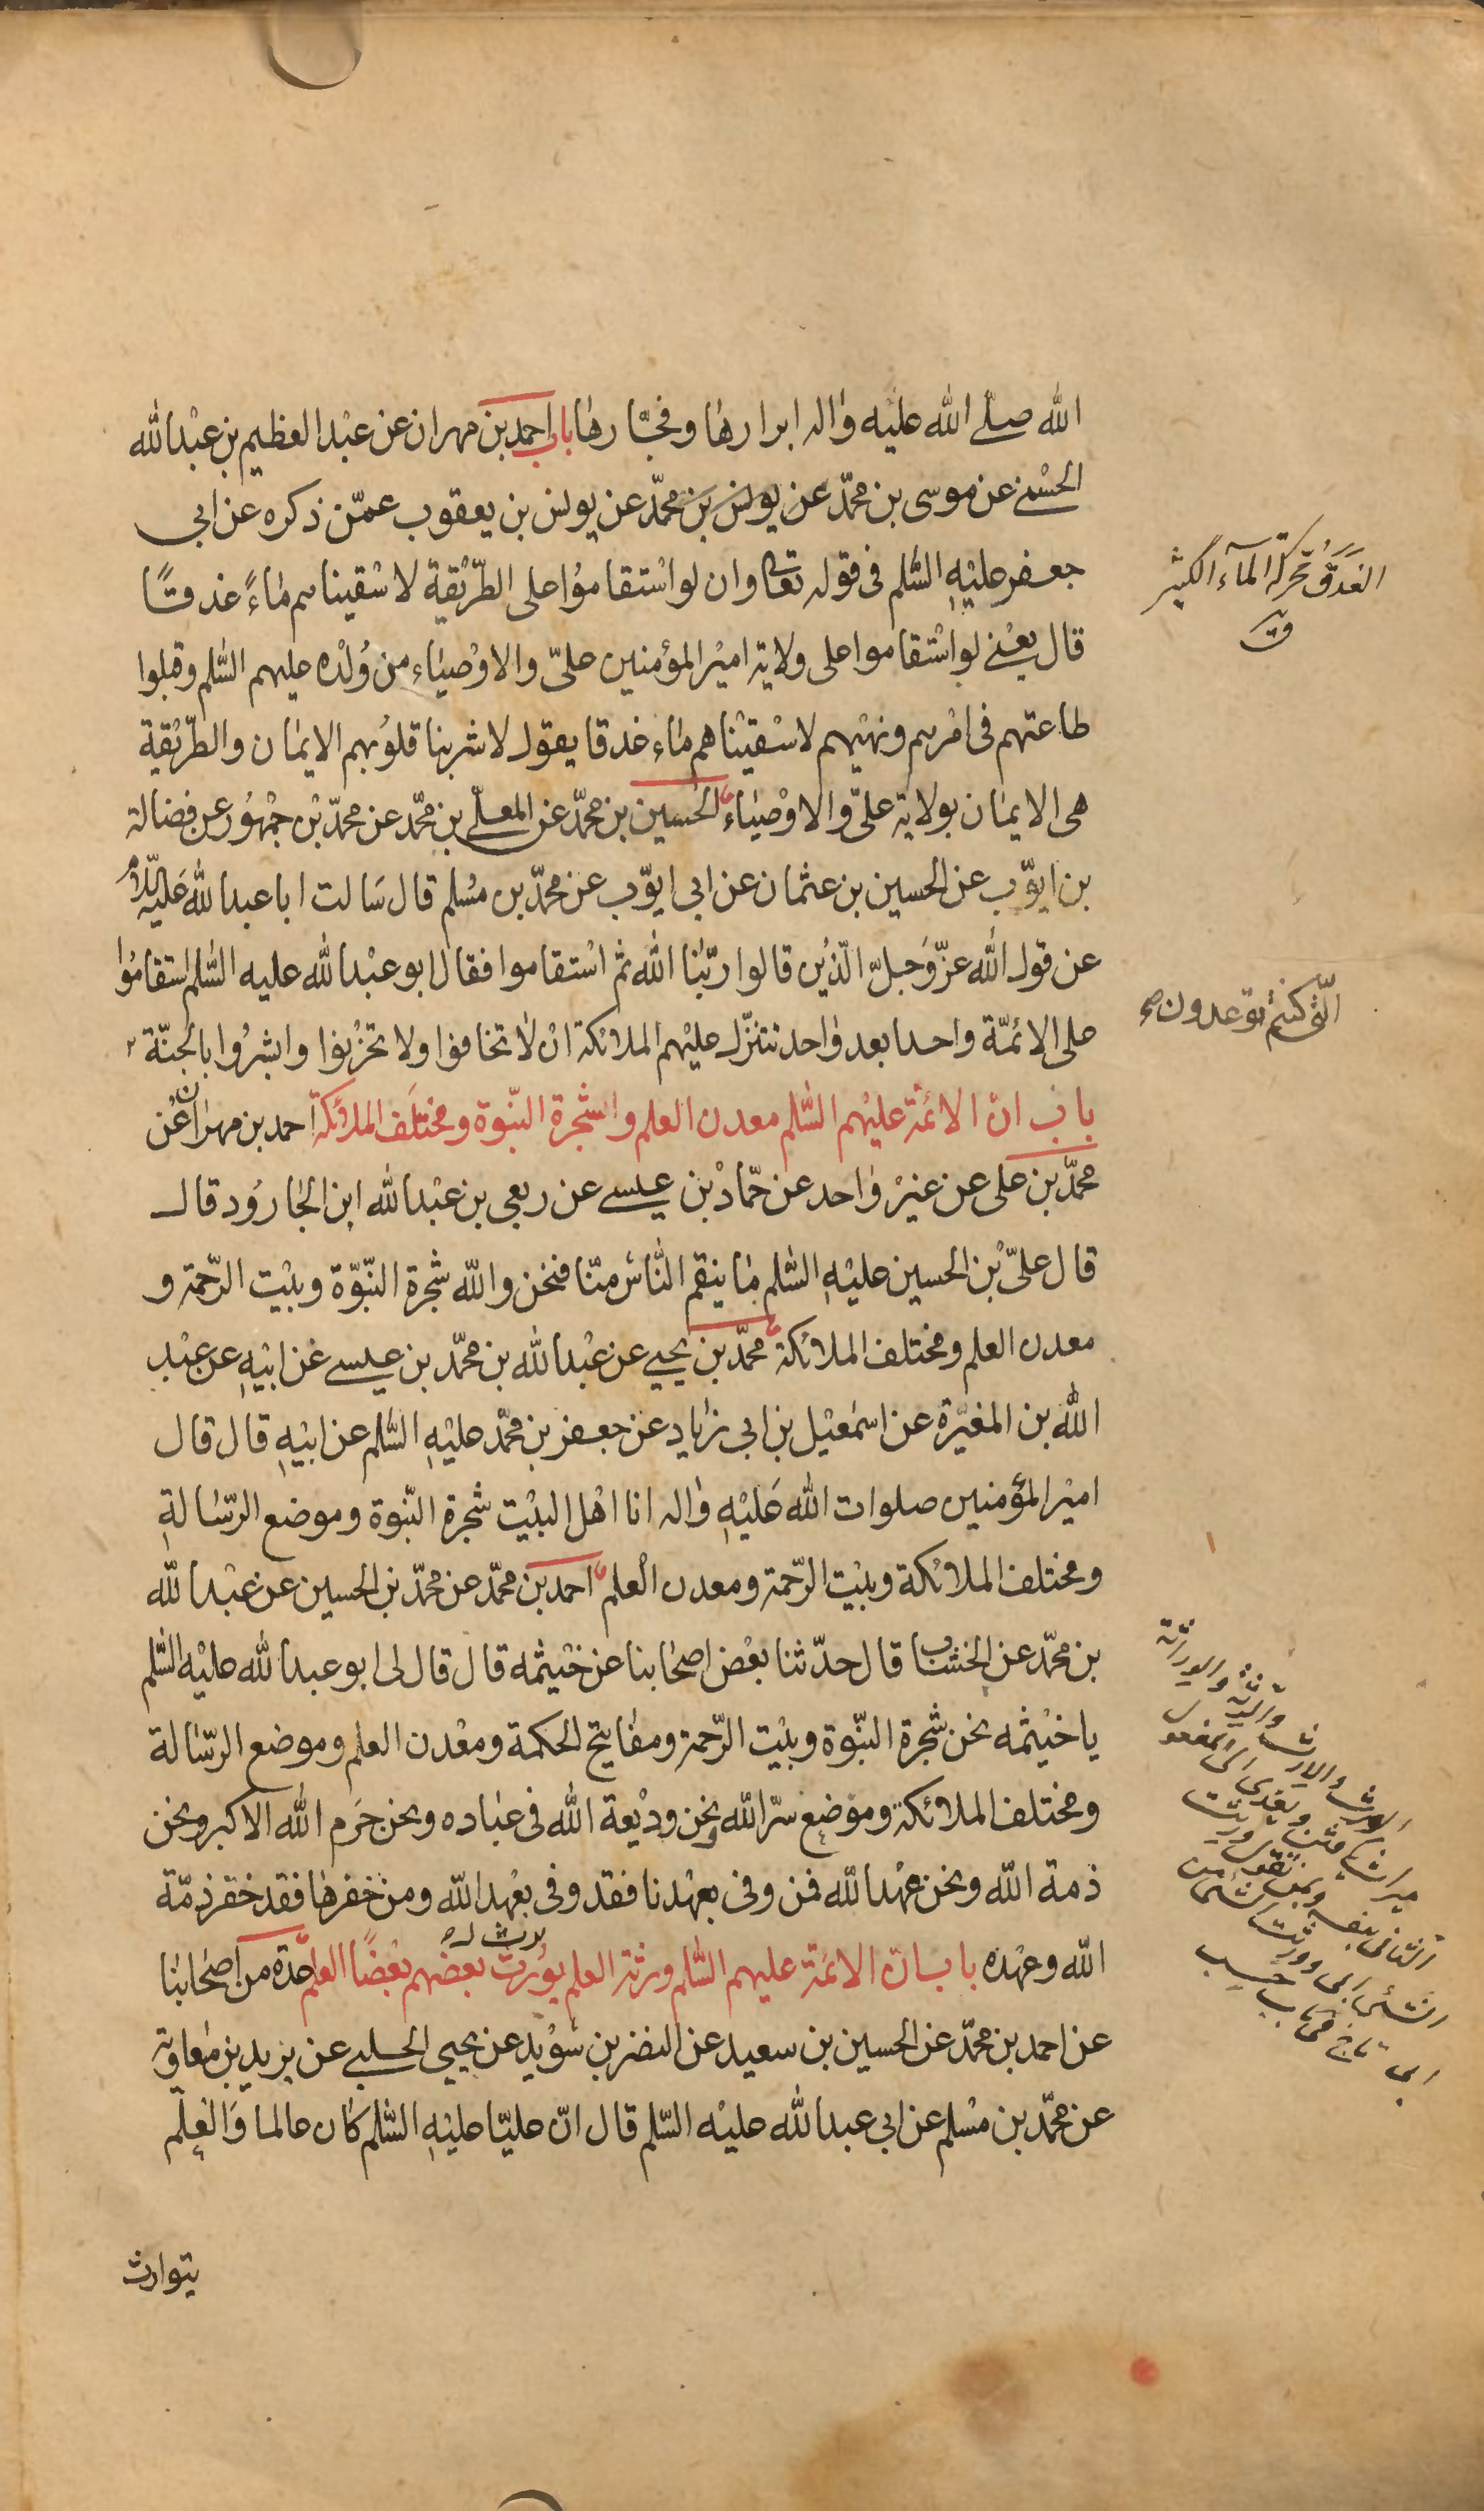 الله صلّى الله عليه واله ابرارها وفجّارها باب احمد بن مهران عن عبْد العظيم بن عبْد الله
الحسْنى عن موسى بن محمّد عن يونس بن محمّد عن يونس بن يعقوب عمّن ذكره عن ابى
جعفر عليْهِ السَّلم فى قوله تعالى وان لو اسْتقاموُا على الطّريْقة لاسْقيناهم ماءً غدقًا
قال يعْنى لو اسْتقاموا على ولاية اميْر المؤمنين علىّ والاوْصيٰاء من وُلْده عليهم السَّلم وقبلوا
طاعتهم فى امْرهم ونهْيهم لاسْقيْناهم مٰاء غدقا يقول لاشربنا قلوُبهم الايمٰان والطّريْقة
هى الايمٰان بولاية علىّ والاوْصيٰاء الحُسين بن محمّد عن المعلّى بن محّمد عن محمّد بْن جمْهوُر عن فضالة
بن ايّوب عن الحسين بن عثمان عن ابى ايوّب عن محمّد بن مسُلم قال سَالت ابا عبد الله عَليْهِ السَّلامُ
عن قول الله عزّ وَجلّ الّذيْن قالوا ربّنٰا الله ثم اسْتقاموا فقال ابو عبْد الله عليه السَّلم استقاموُا
على الائمّة واحدا بعد وٰاحد تتنزّل عليْهم الملائكة انْ لاٰ تخافوا ولا تحْزنوا وابشرُوا بالجنّة
الّتى كنتم توعدون صح
باب انّ الائمّة عليْهم السَّلم معدن العلم والشّجرة النّبوة ومختلَف الملائكة احمد بن مهران عْن
محمّد بن على عن غيرْ وٰاحد عن حمّاد بْن عيسى عن ربعى بن عبْد الله ابن الجٰاروُد قال
قال علىّ بْن الحسين عليْهِ السَّلم مٰا ينقم النّاس منّا فنحن والله شجرة النّبوّة وبيْت الرّحمة و
معدن العلم ومختلف الملائكة محمّد بن يحيى عن عبْد الله بن محمّد بن عيسى عن ابيْهِ عن عبْد
الله بن المغيْرة عن اسمٰعيْل بن ابى زيٰاد عن جعفر بن محّمد عليْهِ السَّلم عن ابيْهِ قال قال
اميْر المؤمنين صلوات الله عَليْهِ واٰله انا اهْل البيْت شجرة النّبوة وموضع الرّسٰالةِ
ومختلف الملائكة وبيْت الرّحمة ومعدن الْعلم احمد بن محمّد عن محمّد بن الحسين عن عبْد الله
بن محمّد عن الخشّاب قال حدّثنا بعْض اصحٰابنا عن خيْثمه قال قال لى ابو عبد الله عليْه السَّلم
يا خيْثمه نحن شجرة النّبوة وبيْت الرّحمة ومفاتيْح الحكمة ومعْدن العلم وموضع الرّسٰالة
ومختلف الملائكة وموضع سرّ الله ونحن وديْعة الله فى عبٰاده ونحن حَرم الله الاكبر ونحن
ذمة الله ونحن عهْد الله فمن وفى بعهْدنا فقد وفى بعْهد الله ومن خفرهٰا فقد خفر ذمّة
الله وعهْده باب انّ الائمّة عليهم السَّلم ورثة العلم يوُرث بعضهم بعْضًا العلم عّدة من اصحٰابنٰا
يرث ل
عن احمد بن محمّد عن الحسين بن سعيد عن النضر بن سُوَيد عن يحيى الحلبى عن بريد بن معٰاوية
عن محمّد بن مسْلم عن ابى عبد الله عليْه السّلم قال انّ عليّا عليْهِ السَّلم كان عالما وَالعِلْم
يتوارث
الغَدَقُ مُحَركة المآء الكثير
ق